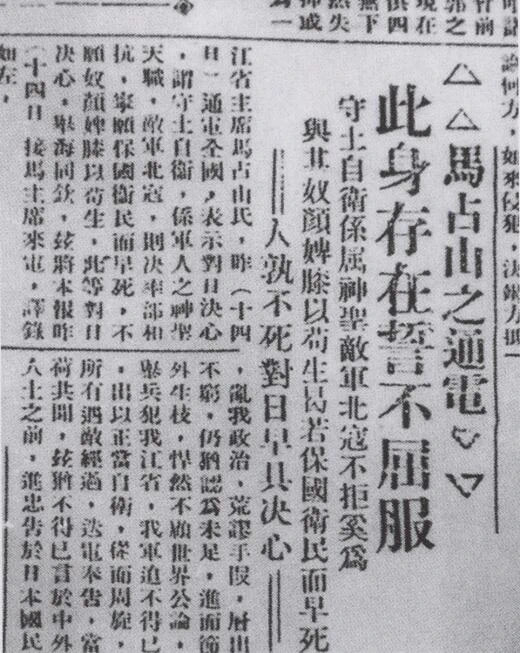 如來侵犯，
△△馬占山之通電▽▽
此身存在誓不屈服
守土自衛係屬神聖敵軍北寇不拒奚爲
與其奴顏婢膝以苟生曷若保國衛民而早死
人孰不死對日早具决心
江省主席馬占山氏，昨（十四
日）通電全國，表示對日決心
，謂守土自衛，係軍人之神聖
天職，敵軍北寇，則決率部相
抗，寧願保國衛民而早死，不
願奴顏婢膝以苟生，此等對日
決心，舉海同欽，茲將本報昨
（十四日）接馬主席來電，譯錄
如左，
，亂我政治，荒謬手段，層出
不窮，仍猶認爲未足，進而節
外生枝，悍然不顧世界公論，
舉兵犯我江省，我軍迫不得已
，出以正當自衛，從而周旋，
所有遇敵經過，迭電奉告，當
荷共聞，茲猶不得已言於中外
人士之前，進忠告於日本國民